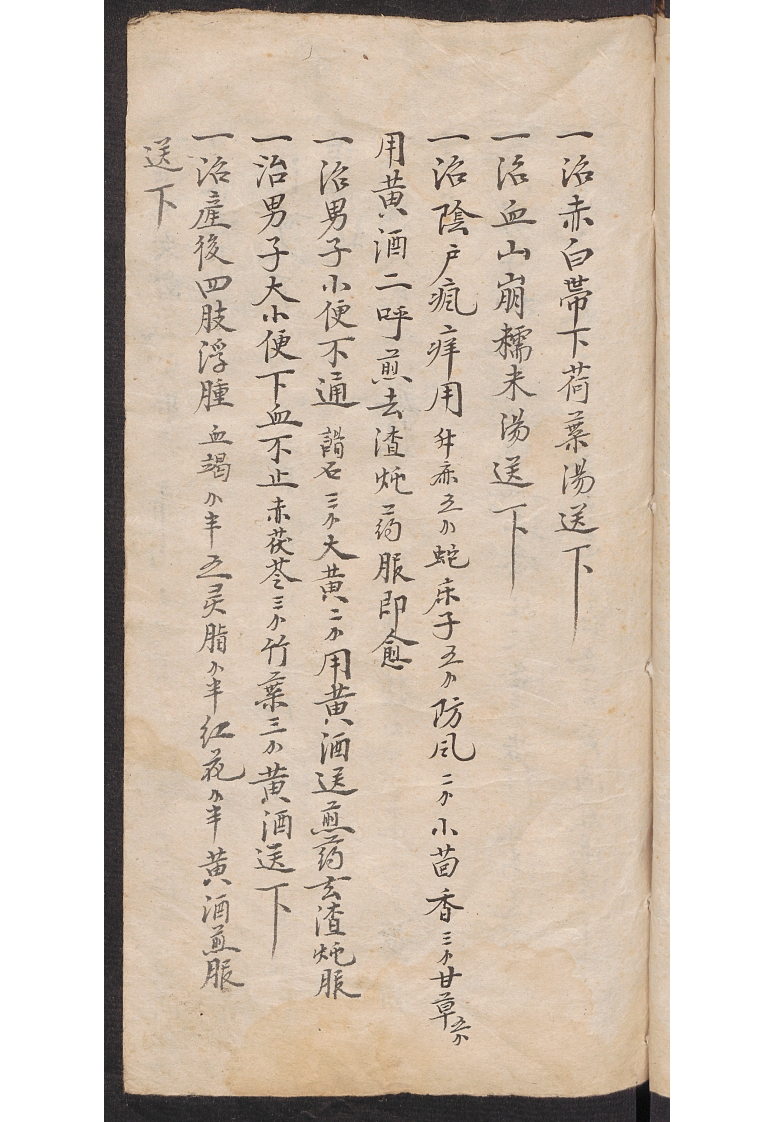 一治赤白帶下荷葉湯送下
一治血山崩糯米湯送下
一治陰户瘋痒用 五 蛇床子五 防风二 小茴香三 甘草
用黄酒二呼煎去渣炖药服即愈
一治男子小便不通 石三 大黄二 用黄酒送煎药去渣炖服
一治男子大小便下血不止赤茯苓三 竹葉三 黄酒送下
一治產後四肢浮腫血竭 半五灵脂 半红花 半黄酒煎服
送下